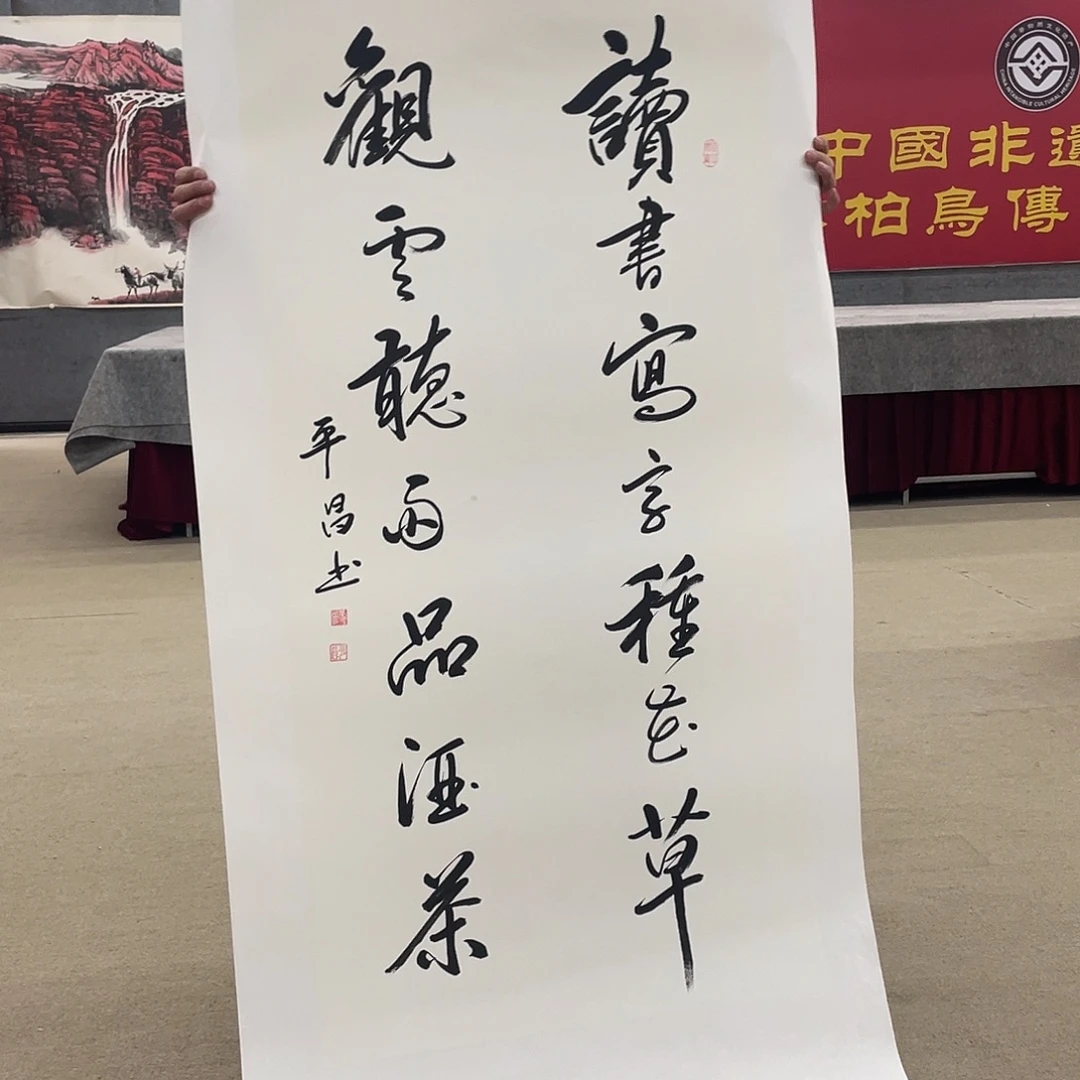 讀書寫字種花草
觀雲聽雨品酒茶
平昌书
中國非遺
柏鳥傳
CHINA INTANGIBLE CULTURAL HERITAGE